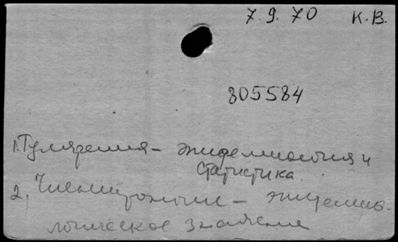 7.9.70 К.В.
805584
1. Туляремия – эпидемиология и
статистика.
2. – эпидемио-
логическое значение